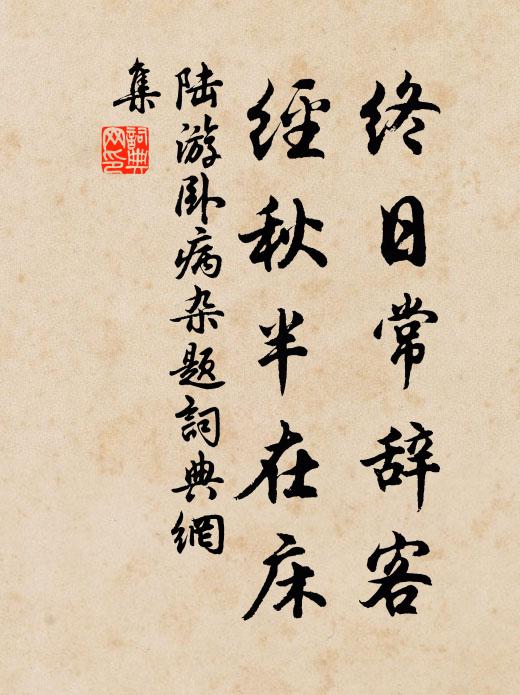 终日常辞客
經秋半在床
陆游卧病杂题詞典網
集
詞典
网印